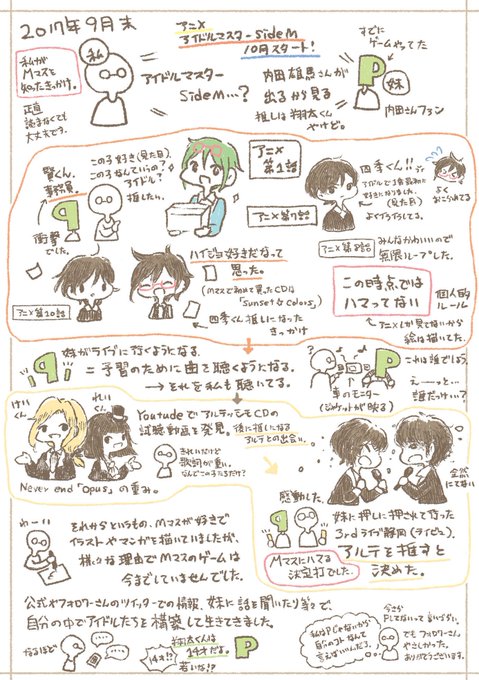 2017年9月末
私がMマスを知ったきっかけ。
正直読まなくても大丈夫です。
私
アイドルマスター
SideM…?
アニメ
アイドルマスターSideM
10月スタート!
内田雄馬さんが
出るから見る
推しは翔太くん
やけど。
すでに
ゲームやってた
P
妹
内田さんファン
賢くん。
事務員。
衝撃
でした。
この子好き(見た目)
この子なんていうの?
アイドル?
推したい。
アニメ
第1話
アニメ第7話
四季くん!!
アイドルで1番最初に
好きになりました。
(見た目)
よくうらしてる。
よく
おこられてる
アニメ第8話
みんなかわいいので
無限ループした。
アニメ第10話
ハイジョ好きだなって
思った。
(Mマスで初めて買ったCDは
「Sunset★Colors」)
四季くん推しになった
きっかけ
この時点では
ハマってない
個人的
ルール
アニメしか見てないから
絵は描いてた。
妹がライブに行くようになる。
=予習のために曲を聴くようになる。
→それを私も聴いてる。
車のモニター
(ジャケットが映る)
これは誰でしょう。
えーーっと…
誰だっけ…?
けいくん
れいくん
Youtubeでアルテッシモの
試聴動画を発見。後に推しになる
アルテとの出会い。
きれいだけど
歌詞が重い。
なんでこの子たちだけ?
Never end「opus」の重み。
全然
にてない
感動した。
妹に押しに押されて行った
3rdライブ静岡(ライビュ)。
アルテを推すと
決めた。
Mマスにハマる
決定打でした。
わーい
それからというもの、Mマスが好きで
イラストやマンガを描いていましたが、
様々な理由でMマスのゲームは
今までしていませんでした。
公式やフォロワーさんのツイッターでの情報、妹に話を聞いたり等で、
自分の中でアイドルたちを構築して生きてきました。
なるほど
翔太くんは
14才だよ。
14才!?
若いな!?
私はPじゃないから
自分のコトなんて
言えないんだろう。
今さら
Pしてないって言いづらい。
でもフォロワーさん
やさしかった。
ありがとうございます。